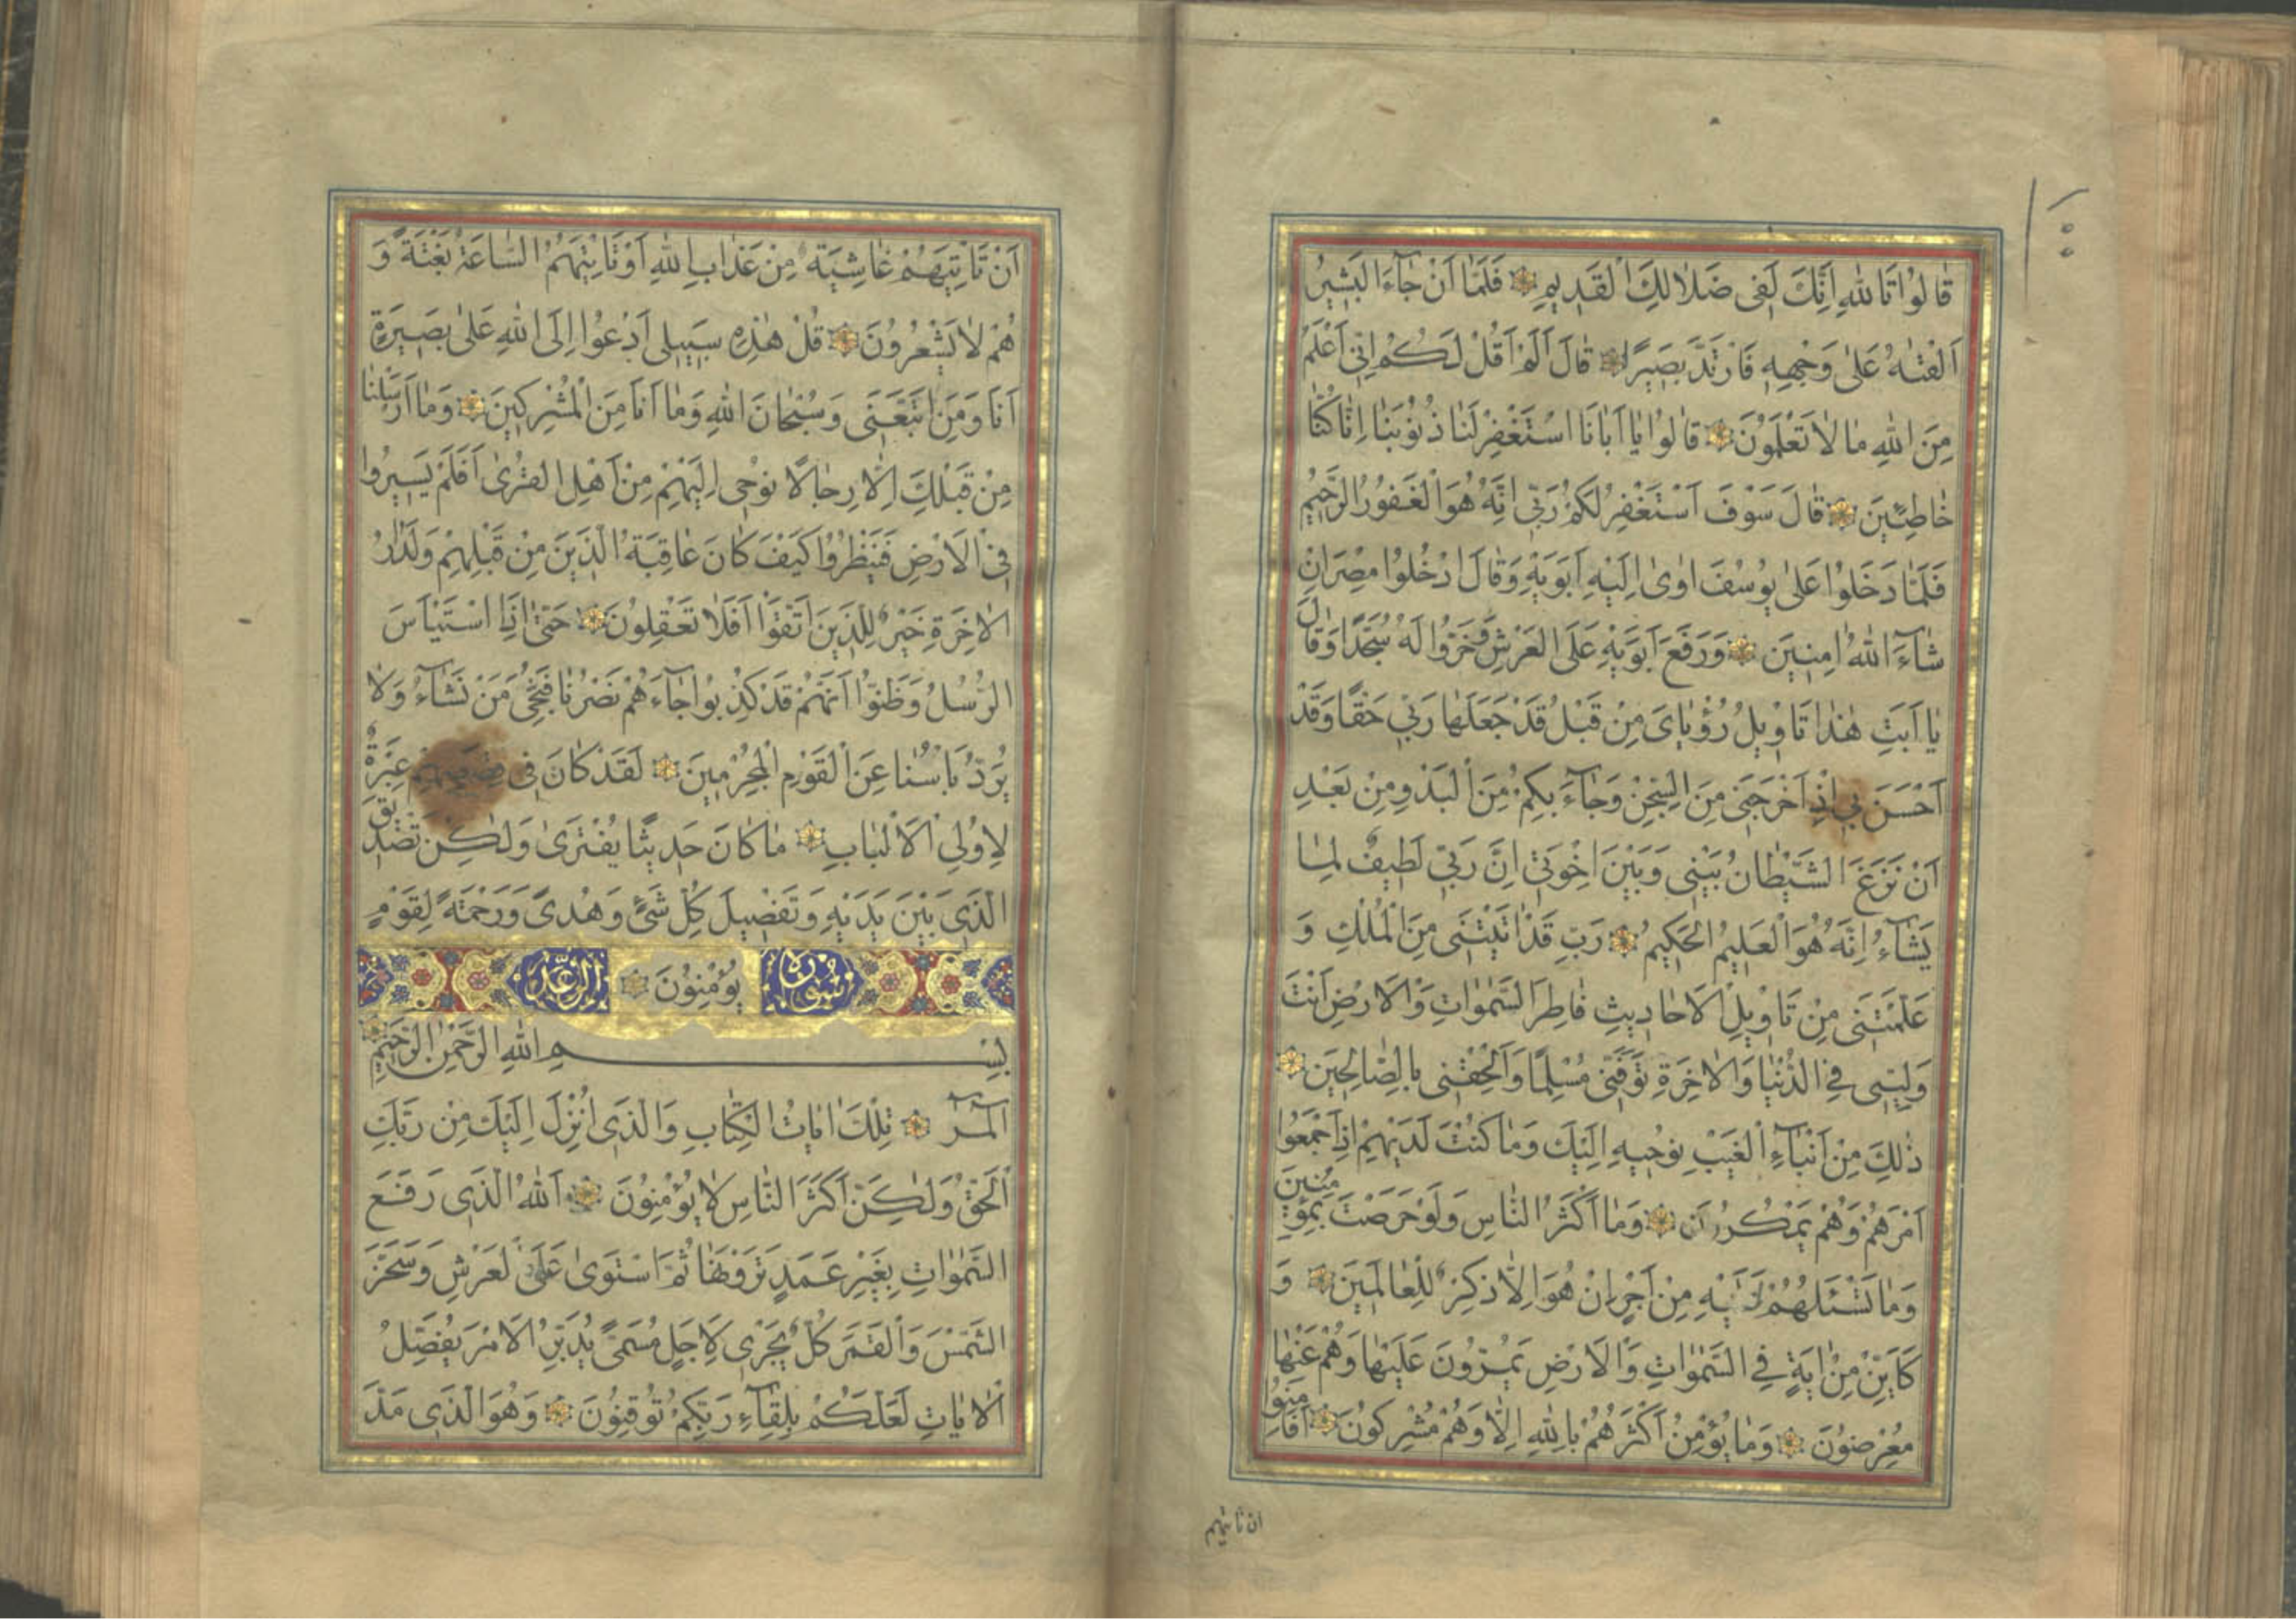 قَالُوا تَاللهِ اِنَّكَ لَفِى ضَلَالِكَ الْقَدِيمِ فَلَمَّا اَنْ جَاءَ الْبَشِيرُ
اَلْقٰيهُ عَلٰى وَجْهِهِ فَارْتَدَّ بَصِيرًا قَالَ اَلَمْ اَقُلْ لَكُمْ اِنِّى اَعْلَمُ
مِنَ اللهِ مَا لَا تَعْلَمُونَ قَالُوا يَا اَبَانَا اسْتَغْفِرْ لَنَا ذُنُوبَنَا اِنَّا كُنَّا
خَاطِئِينَ قَالَ سَوْفَ اَسْتَغْفِرُ لَكُمْ رَبِّى اِنَّهُ هُوَ الْغَفُورُ الرَّحِيمُ
فَلَمَّا دَخَلُوا عَلٰى يُوسُفَ اٰوٰى اِلَيْهِ اَبَوَيْهِ وَقَالَ ادْخُلُوا مِصْرَ اِنْ
شَاءَ اللهُ اٰمِنِينَ وَرَفَعَ اَبَوَيْهِ عَلَى الْعَرْشِ وَخَرُّوا لَهُ سُجَّدًا وَقَالَ
يَا اَبَتِ هٰذَا تَاْوِيلُ رُؤْيَاىَ مِنْ قَبْلُ قَدْ جَعَلَهَا رَبِّى حَقًّا وَقَدْ
اَحْسَنَ بِى اِذْ اَخْرَجَنِى مِنَ السِّجْنِ وَجَاءَ بِكُمْ مِنَ الْبَدْوِ مِنْ بَعْدِ
اَنْ نَزَغَ الشَّيْطَانُ بَيْنِى وَبَيْنَ اِخْوَتِى اِنَّ رَبِّى لَطِيفٌ لِمَا
يَشَاءُ اِنَّهُ هُوَ الْعَلِيمُ الْحَكِيمُ رَبِّ قَدْ اٰتَيْتَنِى مِنَ الْمُلْكِ وَ
عَلَّمْتَنِى مِنْ تَاْوِيلِ الْاَحَادِيثِ فَاطِرَ السَّمٰوَاتِ وَالْاَرْضِ اَنْتَ
وَلِيِّى فِى الدُّنْيَا وَالْاٰخِرَةِ تَوَفَّنِى مُسْلِمًا وَاَلْحِقْنِى بِالصَّالِحِينَ
ذٰلِكَ مِنْ اَنْبَاءِ الْغَيْبِ نُوحِيهِ اِلَيْكَ وَمَا كُنْتَ لَدَيْهِمْ اِذْ اَجْمَعُوا
اَمْرَهُمْ وَهُمْ يَمْكُرُونَ وَمَا اَكْثَرُ النَّاسِ وَلَوْ حَرَصْتَ بِمُؤْمِنِينَ
وَمَا تَسْئَلُهُمْ عَلَيْهِ مِنْ اَجْرٍ اِنْ هُوَ اِلَّا ذِكْرٌ لِلْعَالَمِينَ وَ
كَاَيِّنْ مِنْ اٰيَةٍ فِى السَّمٰوَاتِ وَالْاَرْضِ يَمُرُّونَ عَلَيْهَا وَهُمْ عَنْهَا
مُعْرِضُونَ وَمَا يُؤْمِنُ اَكْثَرُهُمْ بِاللهِ اِلَّا وَهُمْ مُشْرِكُونَ اَفَاَمِنُوا
ان تاتيهم
اَنْ تَاْتِيَهُمْ غَاشِيَةٌ مِنْ عَذَابِ اللهِ اَوْ تَاْتِيَهُمُ السَّاعَةُ بَغْتَةً وَ
هُمْ لَا يَشْعُرُونَ قُلْ هٰذِهِ سَبِيلِى اَدْعُوا اِلَى اللهِ عَلٰى بَصِيرَةٍ
اَنَا وَمَنِ اتَّبَعَنِى وَسُبْحَانَ اللهِ وَمَا اَنَا مِنَ الْمُشْرِكِينَ وَمَا اَرْسَلْنَا
مِنْ قَبْلِكَ اِلَّا رِجَالًا نُوحِى اِلَيْهِمْ مِنْ اَهْلِ الْقُرٰى اَفَلَمْ يَسِيرُوا
فِى الْاَرْضِ فَيَنْظُرُوا كَيْفَ كَانَ عَاقِبَةُ الَّذِينَ مِنْ قَبْلِهِمْ وَلَدَارُ
الْاٰخِرَةِ خَيْرٌ لِلَّذِينَ اتَّقَوْا اَفَلَا تَعْقِلُونَ حَتّٰى اِذَا اسْتَيْاَسَ
الرُّسُلُ وَظَنُّوا اَنَّهُمْ قَدْ كُذِبُوا جَاءَهُمْ نَصْرُنَا فَنُجِّىَ مَنْ نَشَاءُ وَلَا
يُرَدُّ بَاْسُنَا عَنِ الْقَوْمِ الْمُجْرِمِينَ لَقَدْ كَانَ فِى قَصَصِهِمْ عِبْرَةٌ
لِاُولِى الْاَلْبَابِ مَا كَانَ حَدِيثًا يُفْتَرٰى وَلٰكِنْ تَصْدِيقَ
الَّذِى بَيْنَ يَدَيْهِ وَتَفْصِيلَ كُلِّ شَىْءٍ وَهُدًى وَرَحْمَةً لِقَوْمٍ
سُورَة يُؤْمِنُونَ الرَّعْد
بِسْمِ اللهِ الرَّحْمٰنِ الرَّحِيمِ
الٓمٓرٰ تِلْكَ اٰيَاتُ الْكِتَابِ وَالَّذِى اُنْزِلَ اِلَيْكَ مِنْ رَبِّكَ
الْحَقُّ وَلٰكِنَّ اَكْثَرَ النَّاسِ لَا يُؤْمِنُونَ اَللهُ الَّذِى رَفَعَ
السَّمٰوَاتِ بِغَيْرِ عَمَدٍ تَرَوْنَهَا ثُمَّ اسْتَوٰى عَلَى الْعَرْشِ وَسَخَّرَ
الشَّمْسَ وَالْقَمَرَ كُلٌّ يَجْرِى لِاَجَلٍ مُسَمًّى يُدَبِّرُ الْاَمْرَ يُفَصِّلُ
الْاٰيَاتِ لَعَلَّكُمْ بِلِقَاءِ رَبِّكُمْ تُوقِنُونَ وَهُوَ الَّذِى مَدَّ